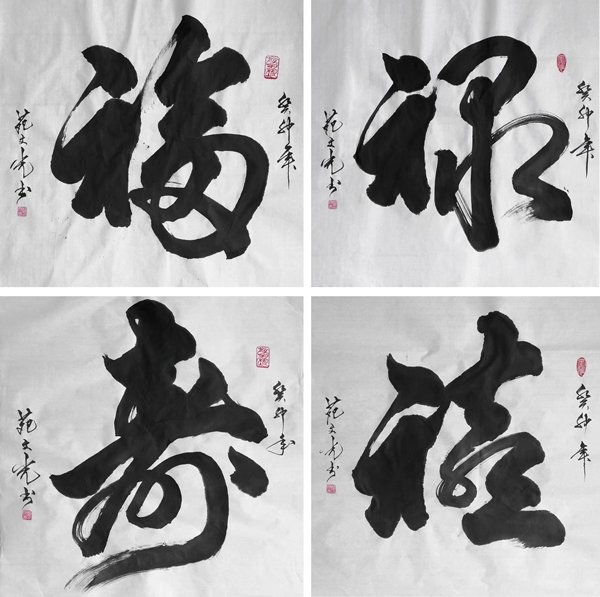 癸卯年
福
苑文光书
癸卯年
禄
苑文光书
癸卯年
寿
苑文光书
癸卯年
禧
苑文光书